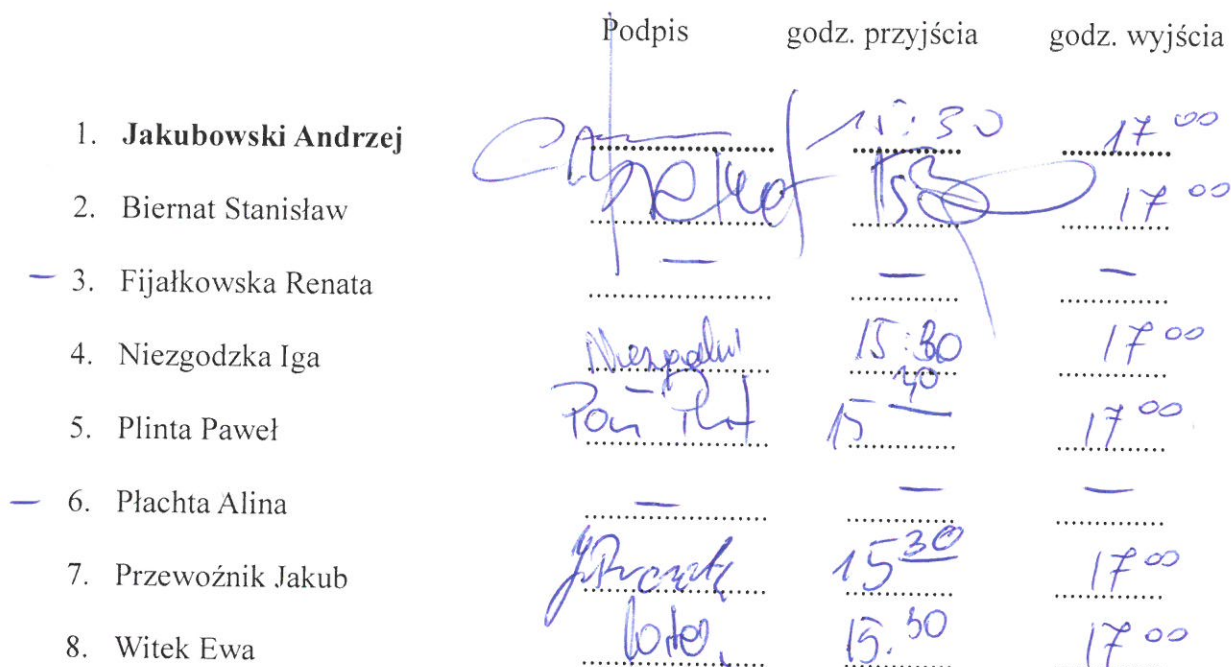 Podpis godz. przyjścia godz. wyjścia
1. Jakubowski Andrzej 15:30 17 00
2. Biernat Stanisław 17 00
– 3. Fijałkowska Renata – – –
4. Niezgodzka Iga 15:30 17 00
5. Plinta Paweł 15 40 17 00
– 6. Płachta Alina – – –
7. Przewoźnik Jakub 15 30 17 00
8. Witek Ewa 15.30 17 00